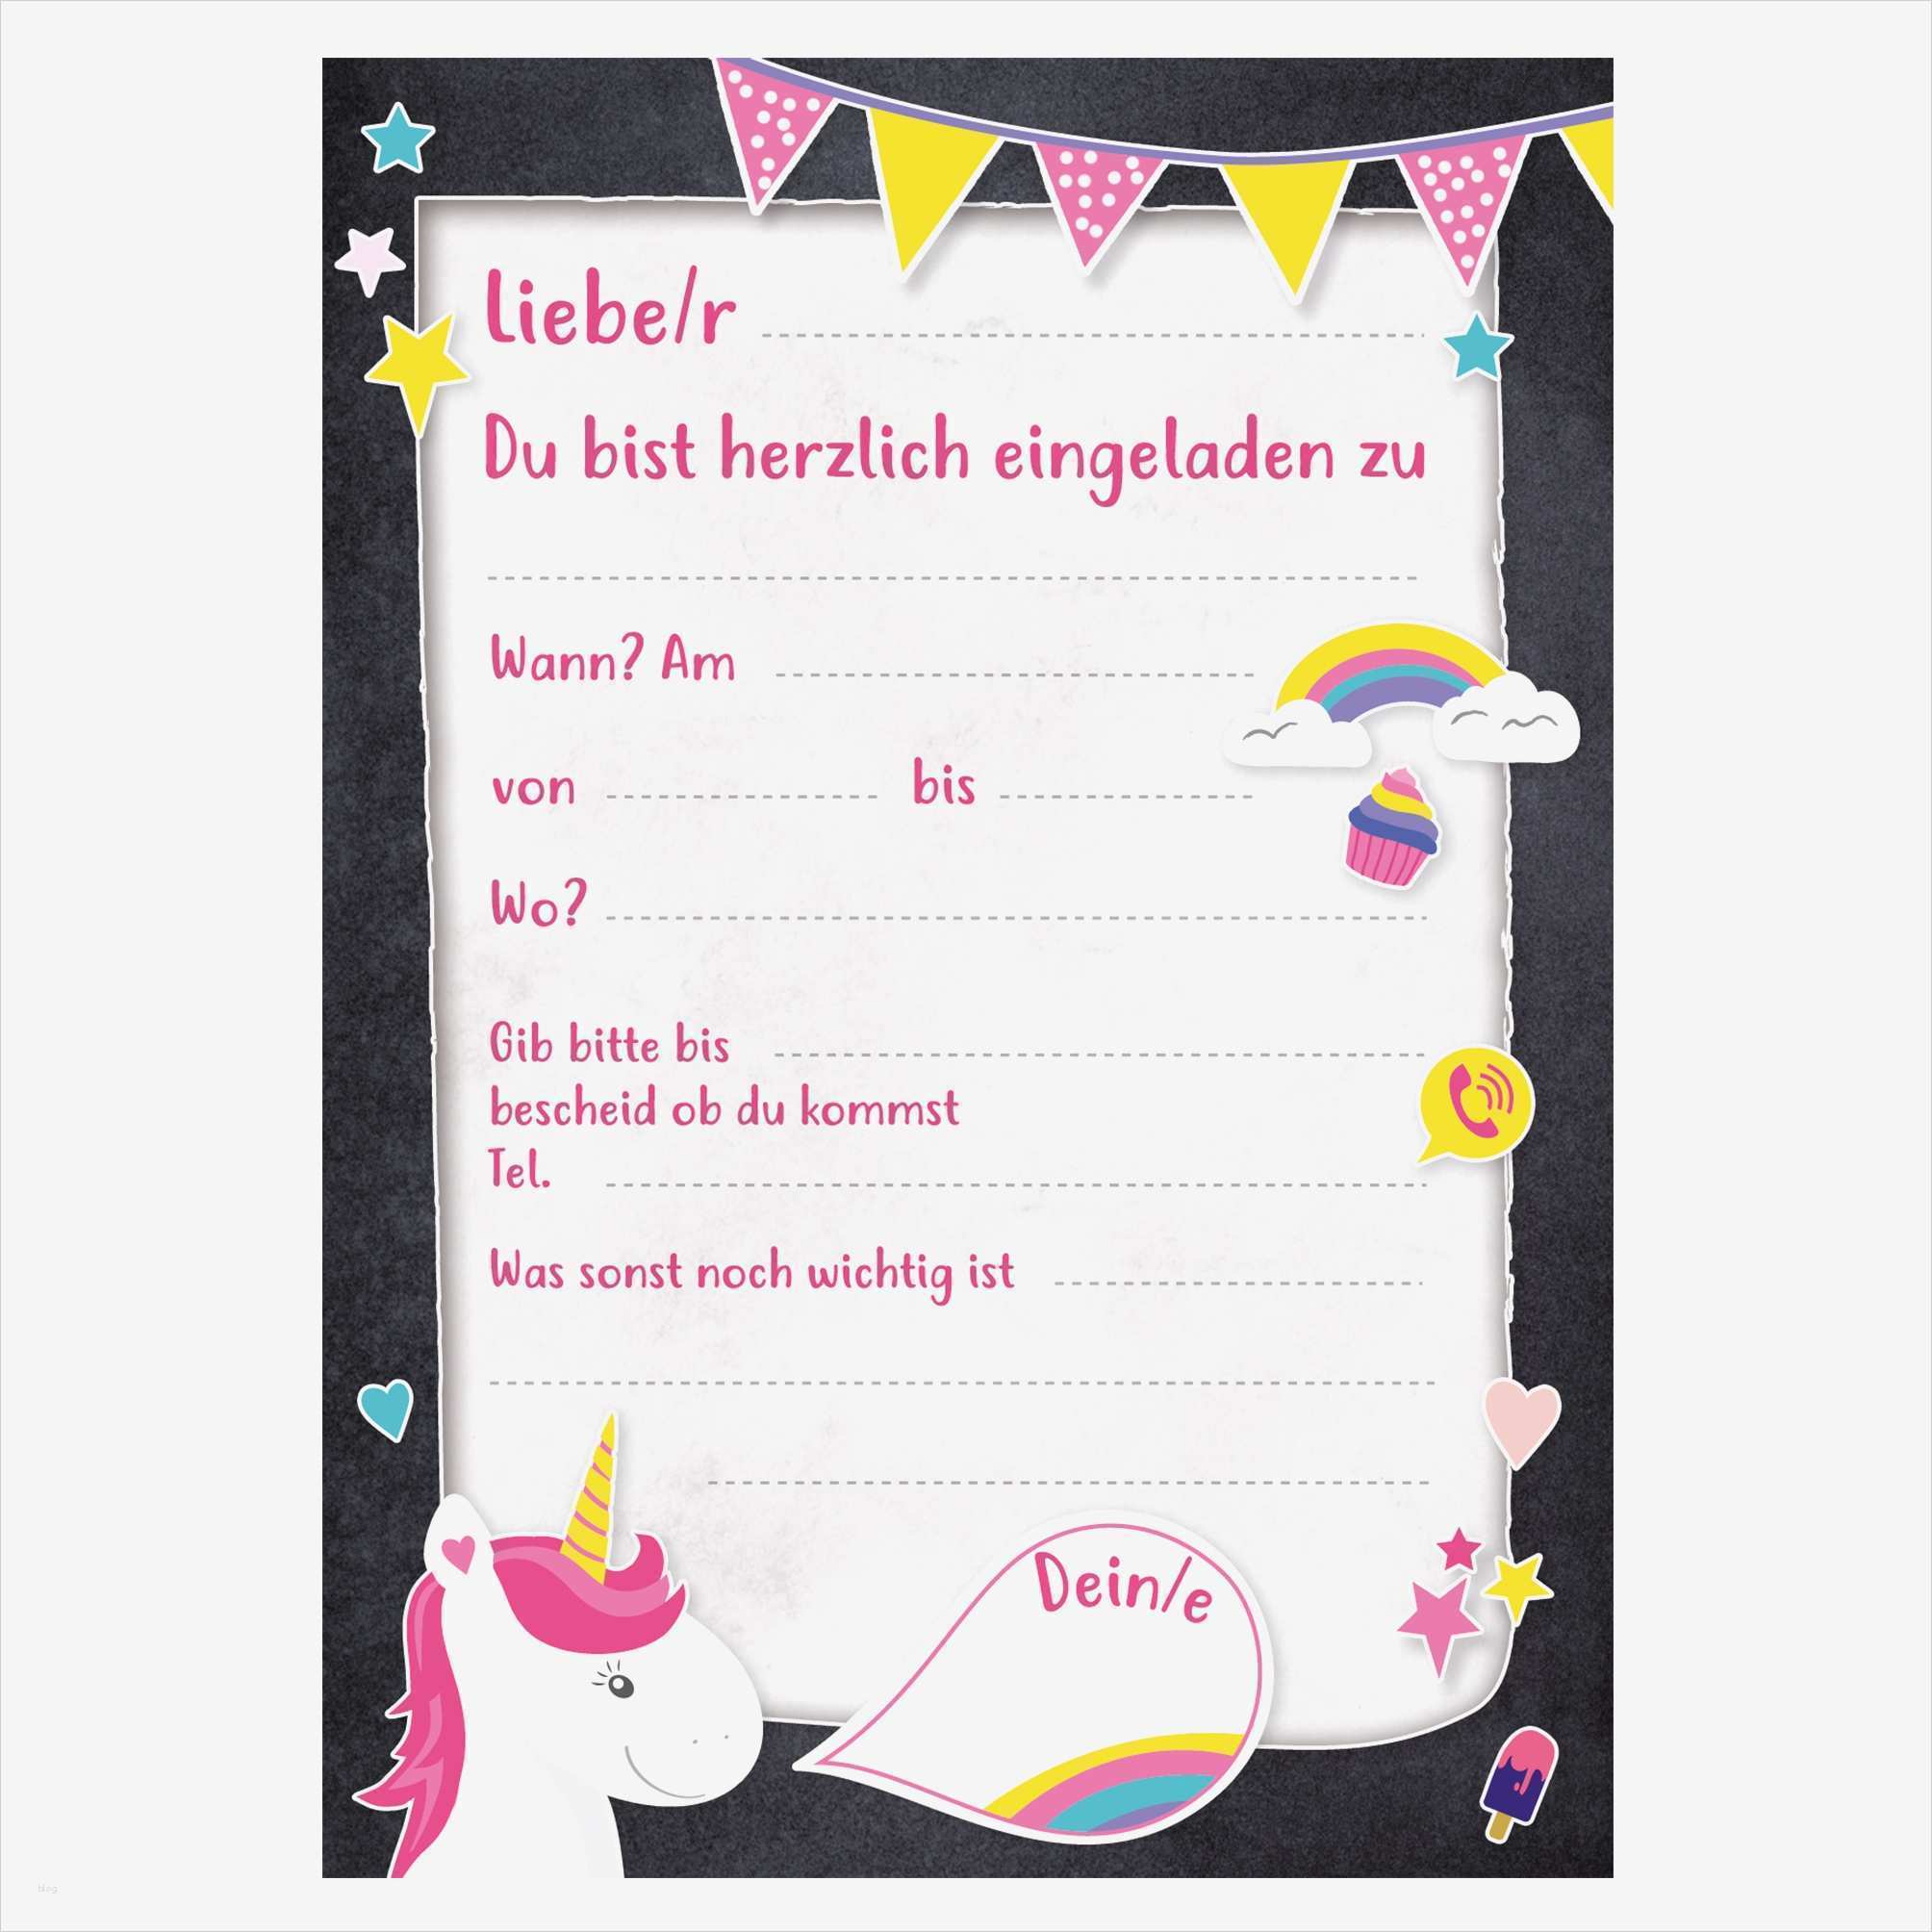 Liebe/r
Du bist herzlich eingeladen zu
Wann? Am
von bis
Wo?
Gib bitte bis
bescheid ob du kommst
Tel.
Was sonst noch wichtig ist
Dein/e
blog